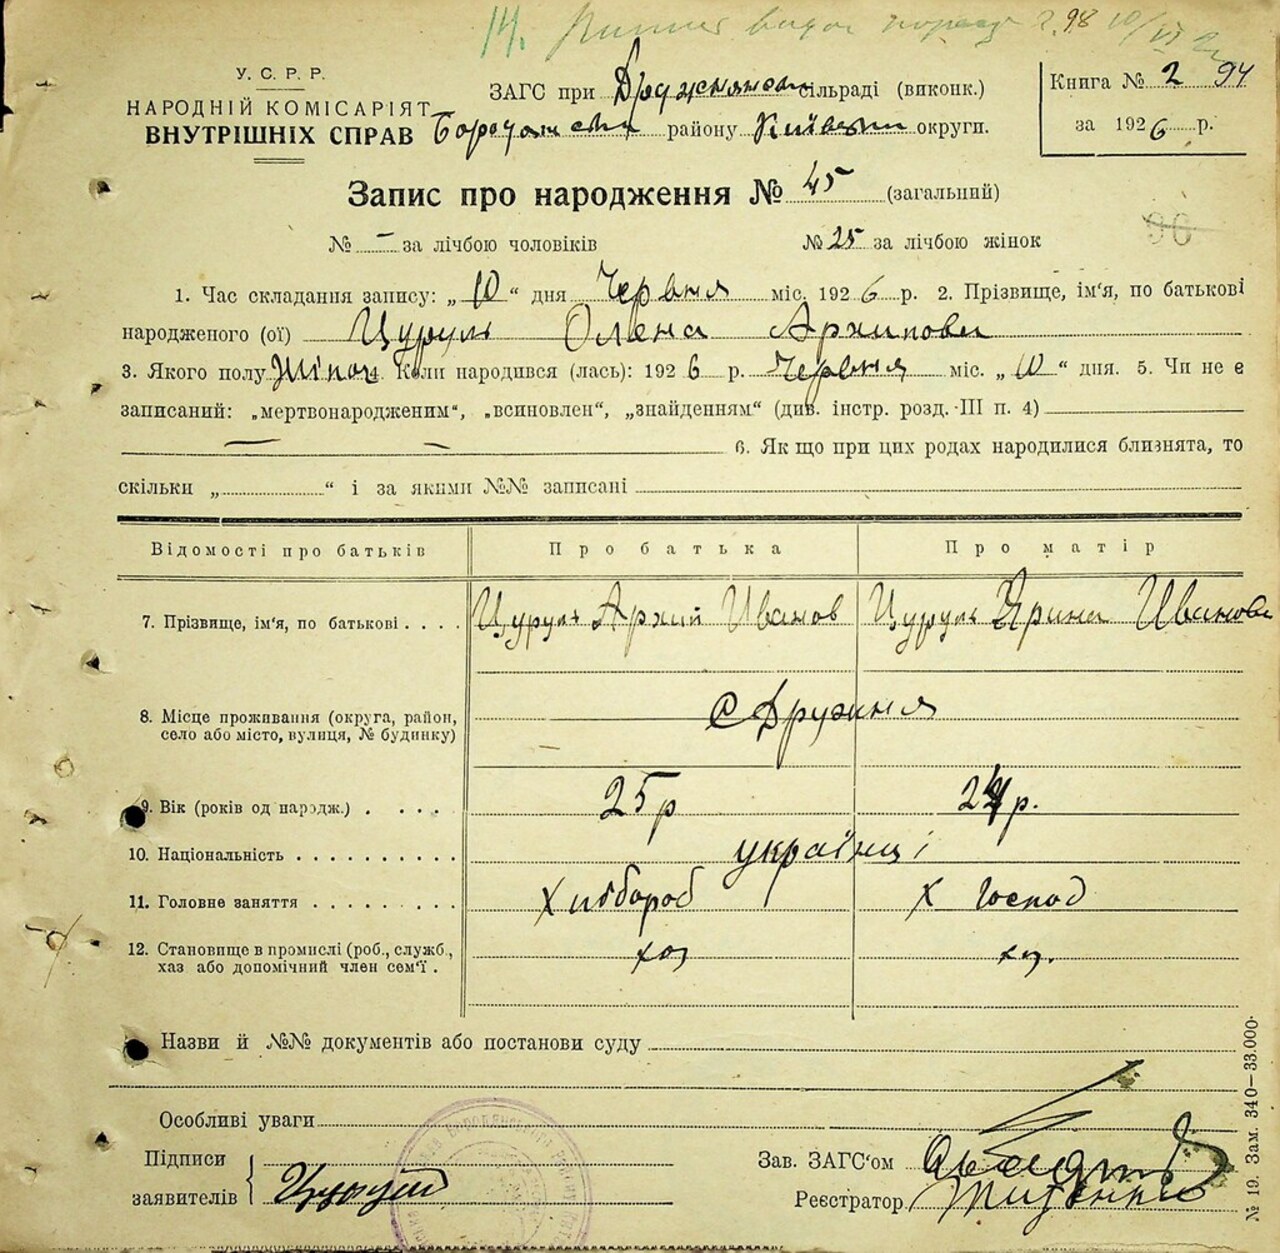 14.
У. С. Р. Р.
НАРОДНІЙ КОМІСАРІЯТ
ВНУТРІШНІХ СПРАВ
ЗАГС при Дружнянск сільраді (виконк.)
Бородянськ району Київськ округи.
Книга № 2 94
за 1926 р.
Запис про народження № 45 (загальний)
№ – за лічбою чоловіків № 25 за лічбою жінок
96
1. Час складання запису: „10“ дня Червня міс. 1926 р. 2. Прізвище, ім'я, по батькові
народженого (ої) Цуруль Олена Архипови
3. Якого полу Жіноч 4. Коли народився (лась): 1926 р. Червня міс. „10“ дня. 5. Чи не є
записаний: „мертвонародженим“, „всиновлен“, „знайденням“ (див. інстр. розд. III п. 4)
— — 6. Як що при цих родах народилися близнята, то
скільки „ “ і за якими №№ записані
Відомості про батьків Про батька Про матір
7. Прізвище, ім'я, по батькові . . . . Цуруль Архип Иванов Цуруль Ярина Иванова
8. Місце проживання (округа, район,
село або місто, вулиця, № будинку) с Дружня
9. Вік (років од народж.) . . . . 25 р 24 р.
10. Національність . . . . . . . . . . українці
11. Головне заняття . . . . . . . . . Хлібороб Х Господ
12. Становище в промислі (роб., служб.,
хаз або допомічний член сем'ї . хоз хоз.
Назви й №№ документів або постанови суду
Особливі уваги
Підписи
заявителів Цуруль
Зав. ЗАГС'ом
Реєстратор
№ 19. Зам. 340—33.000.